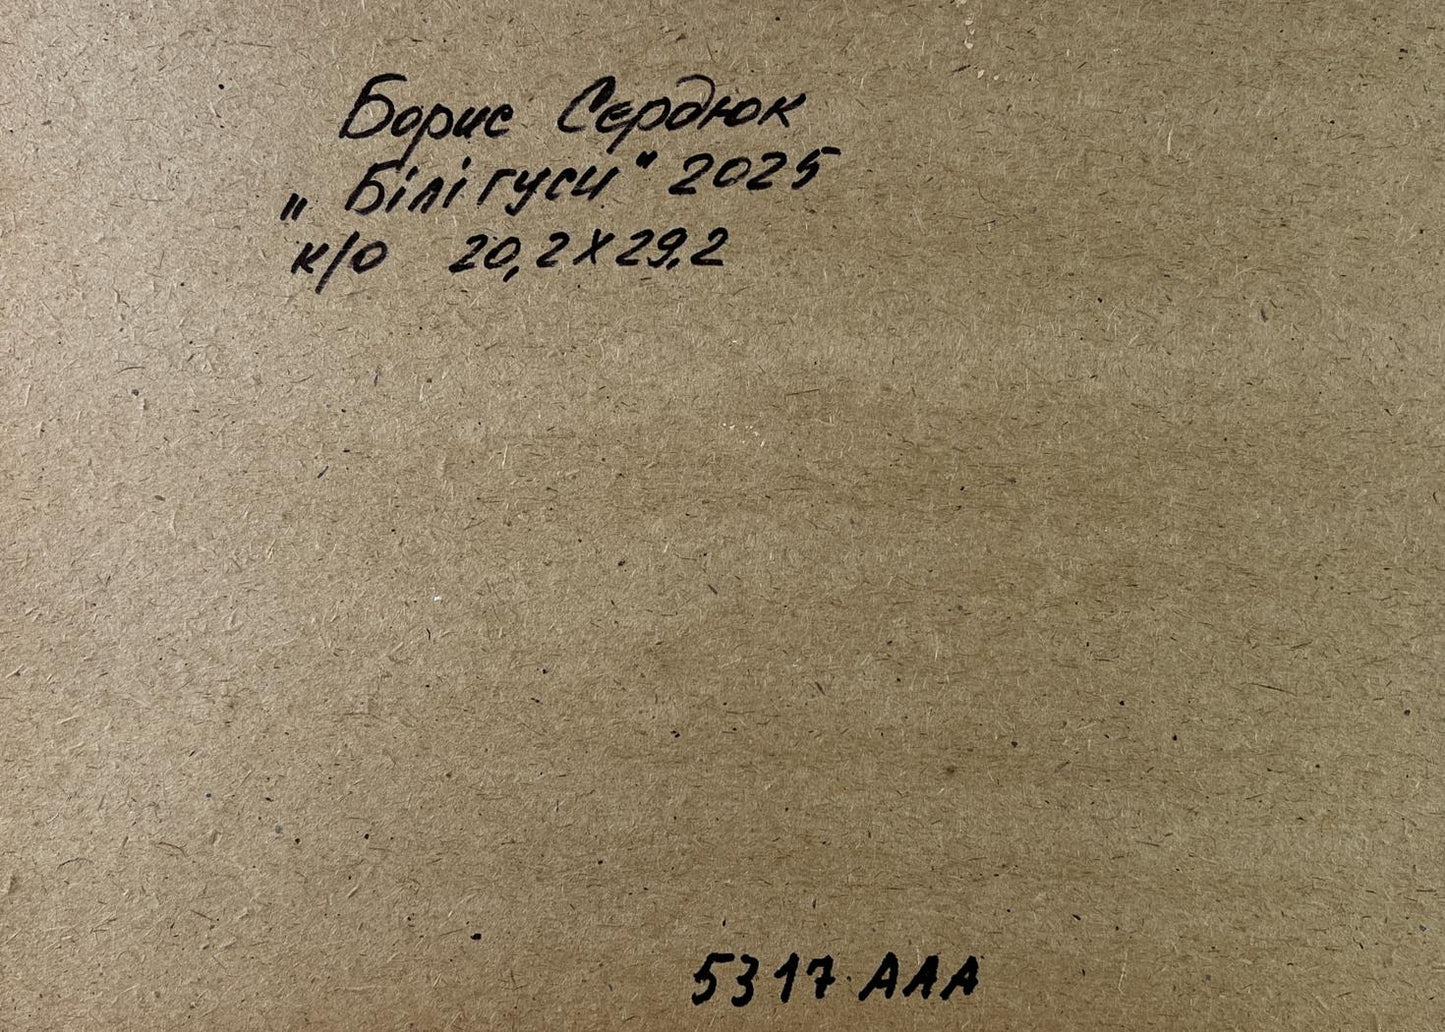 Борис Сердюк
„Білі гуси" 2025
к/о 20,2 х 29,2
5317 ААА